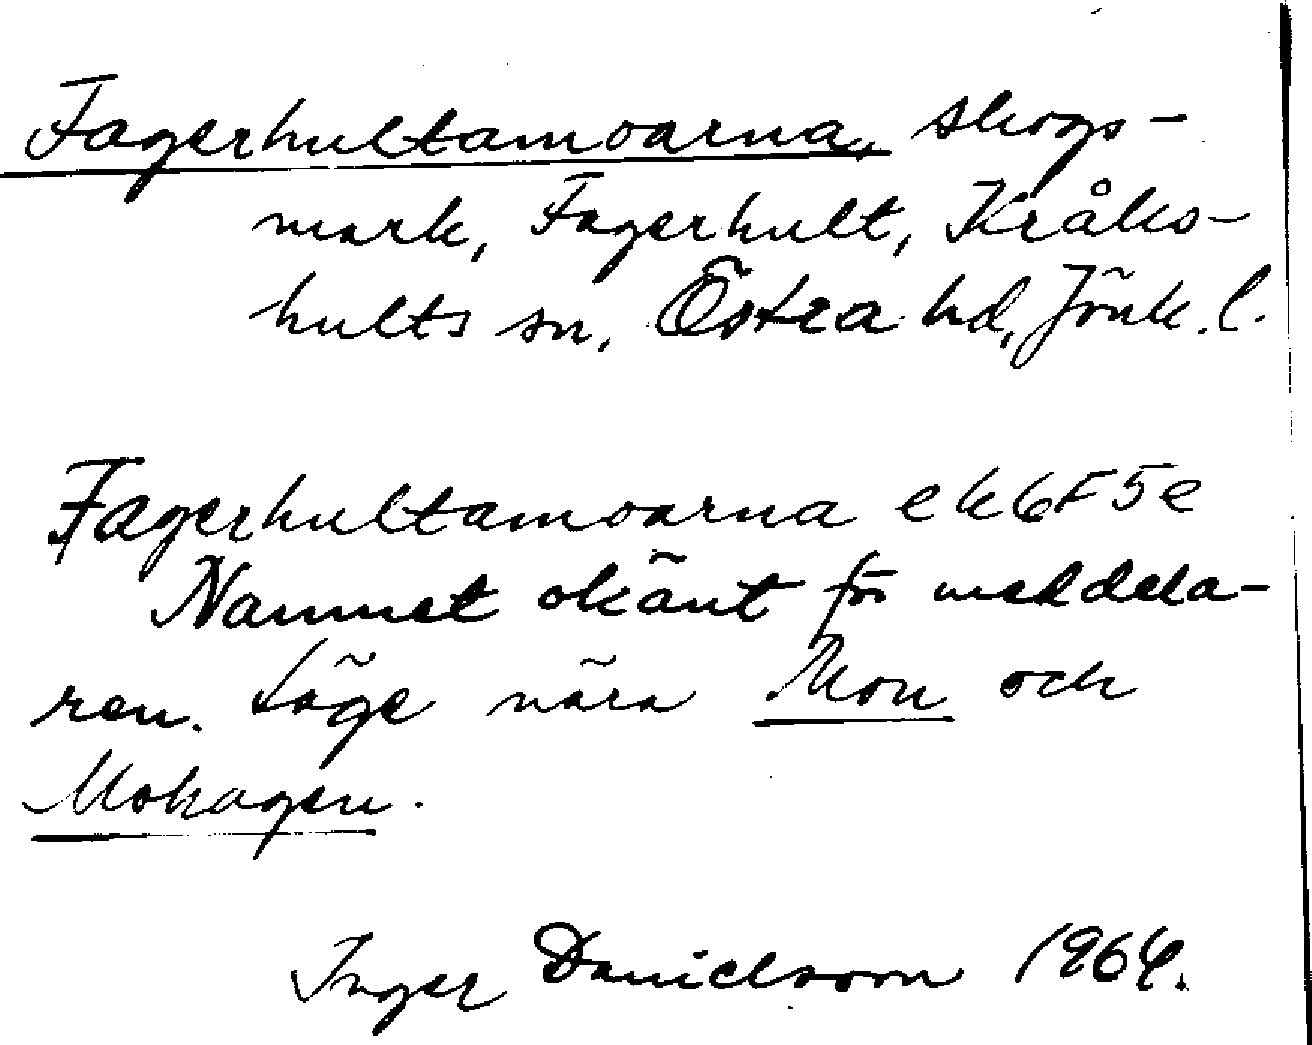 Fagerhultamoarna, skogs-
mark, Fagerhult, Kråks-
hults sn, Östra hd, Jönk. l.
Fagerhultamoarna ek 6F5e
Namnet okänt för meddela-
ren. Läge nära Mon och
Mohagen.
Inger Danielsson 1964.